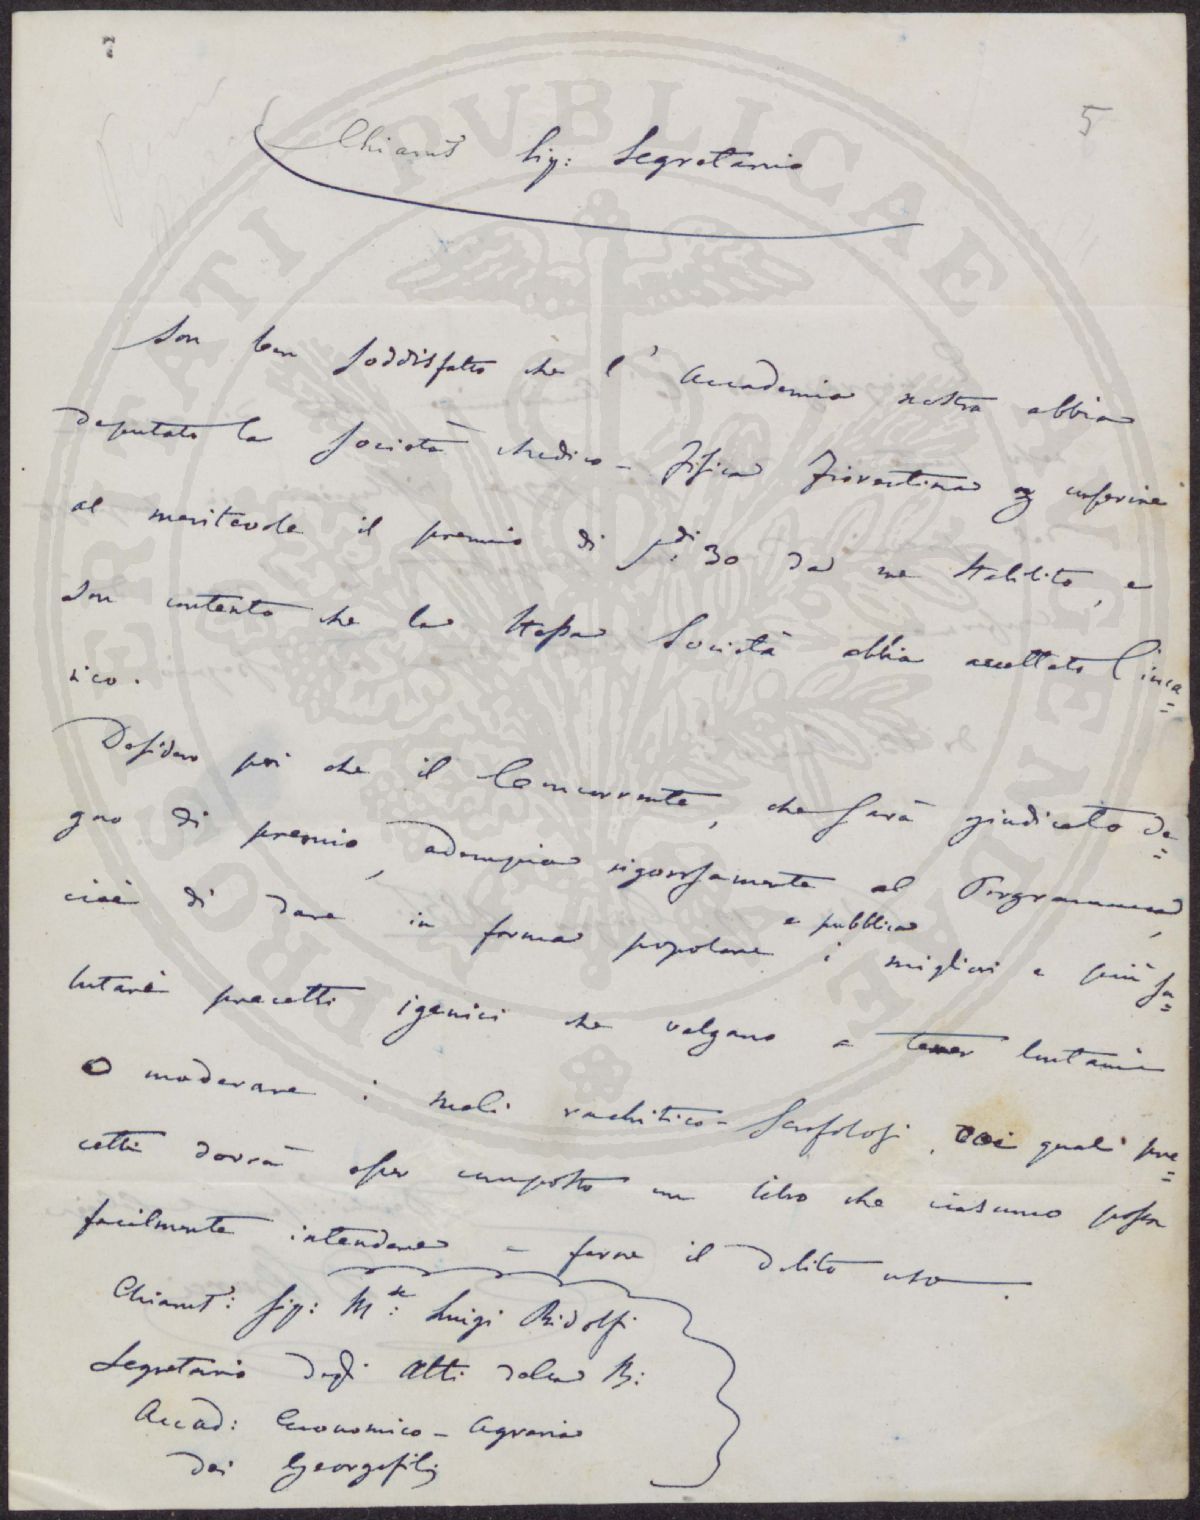 7
5
Chiarmo Sig: Segretario
Son ben soddisfatto che l'Accademia nostra abbia
deputato la Società Medico-Fisica Fiorentina a conferire
al meritevole il premio di fdi: 30 da me stabilito, e
son contento che la stessa Società abbia accettato l'inca=
rico.
Desidero poi che il Concorrente, che sarà giudicato de=
gno di premio, adempia rigorosamente al Programma,
cioè di dare in forma popolare e pubblica i migliori e più sa=
lutari precetti igenici che valgano a tener lontani
o moderare i mali rachitico-scrofolosi, dei quali pre=
cetti dovrà esser composto un libro che ciascuno possa
facilmente intendere e farne il debito uso.
Chiarmo: Sig: Mse: Luigi Ridolfi
Segretario degli Atti della R:
Accad: Economico-Agraria
dei Georgofili
PROSPERITATI PUBLICAE AUGENDAE